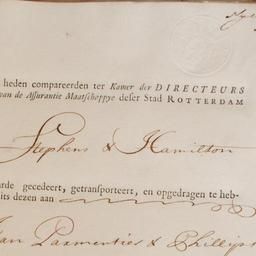 heden compareerden ter Kamer der DIRECTEURS
van de Assurantie Maatschappye deser Stad ROTTERDAM
Stephens & Hamilton
arde gecedeert, getransporteert, en opgedragen te heb-
its dezen aan
Jan Parmentier & Phillips